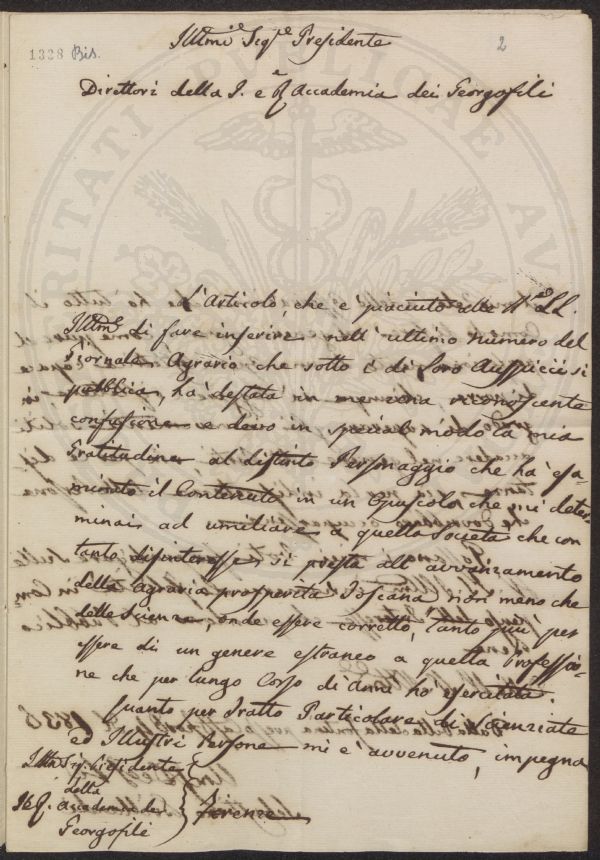 1328 Bis.
2
Illmi Sigri Presidente
Direttori della I. e R Accademia dei Georgofili
L'Articolo, che è piaciuto alle LL.
Illme di fare inserire nell'ultimo numero del
Giornale Agrario che sotto i di loro Auspicii si
pubblica, ha destata in me una riconoscente
confusione e devo in special modo la mia
Gratitudine al distinto Personaggio che ha esa-
minato il Contenuto in un Opuscolo che mi deter-
minai ad umiliare a quella Società che con
tanto disinteresse si presta all'avvanzamento
della agraria prosperità Toscana non meno che
delle Scienze, onde essere corretto, tanto più per
essere di un genere estraneo a quella Professio-
ne che per lungo Corso di Anni ho esercitata.
Quanto per Tratto Particolare di Scienziate
ed Illustri Persone mi è avvenuto, impegna
Illmo Sig. Presidente
della
I e R. Accademia dei
Georgofili
Firenze